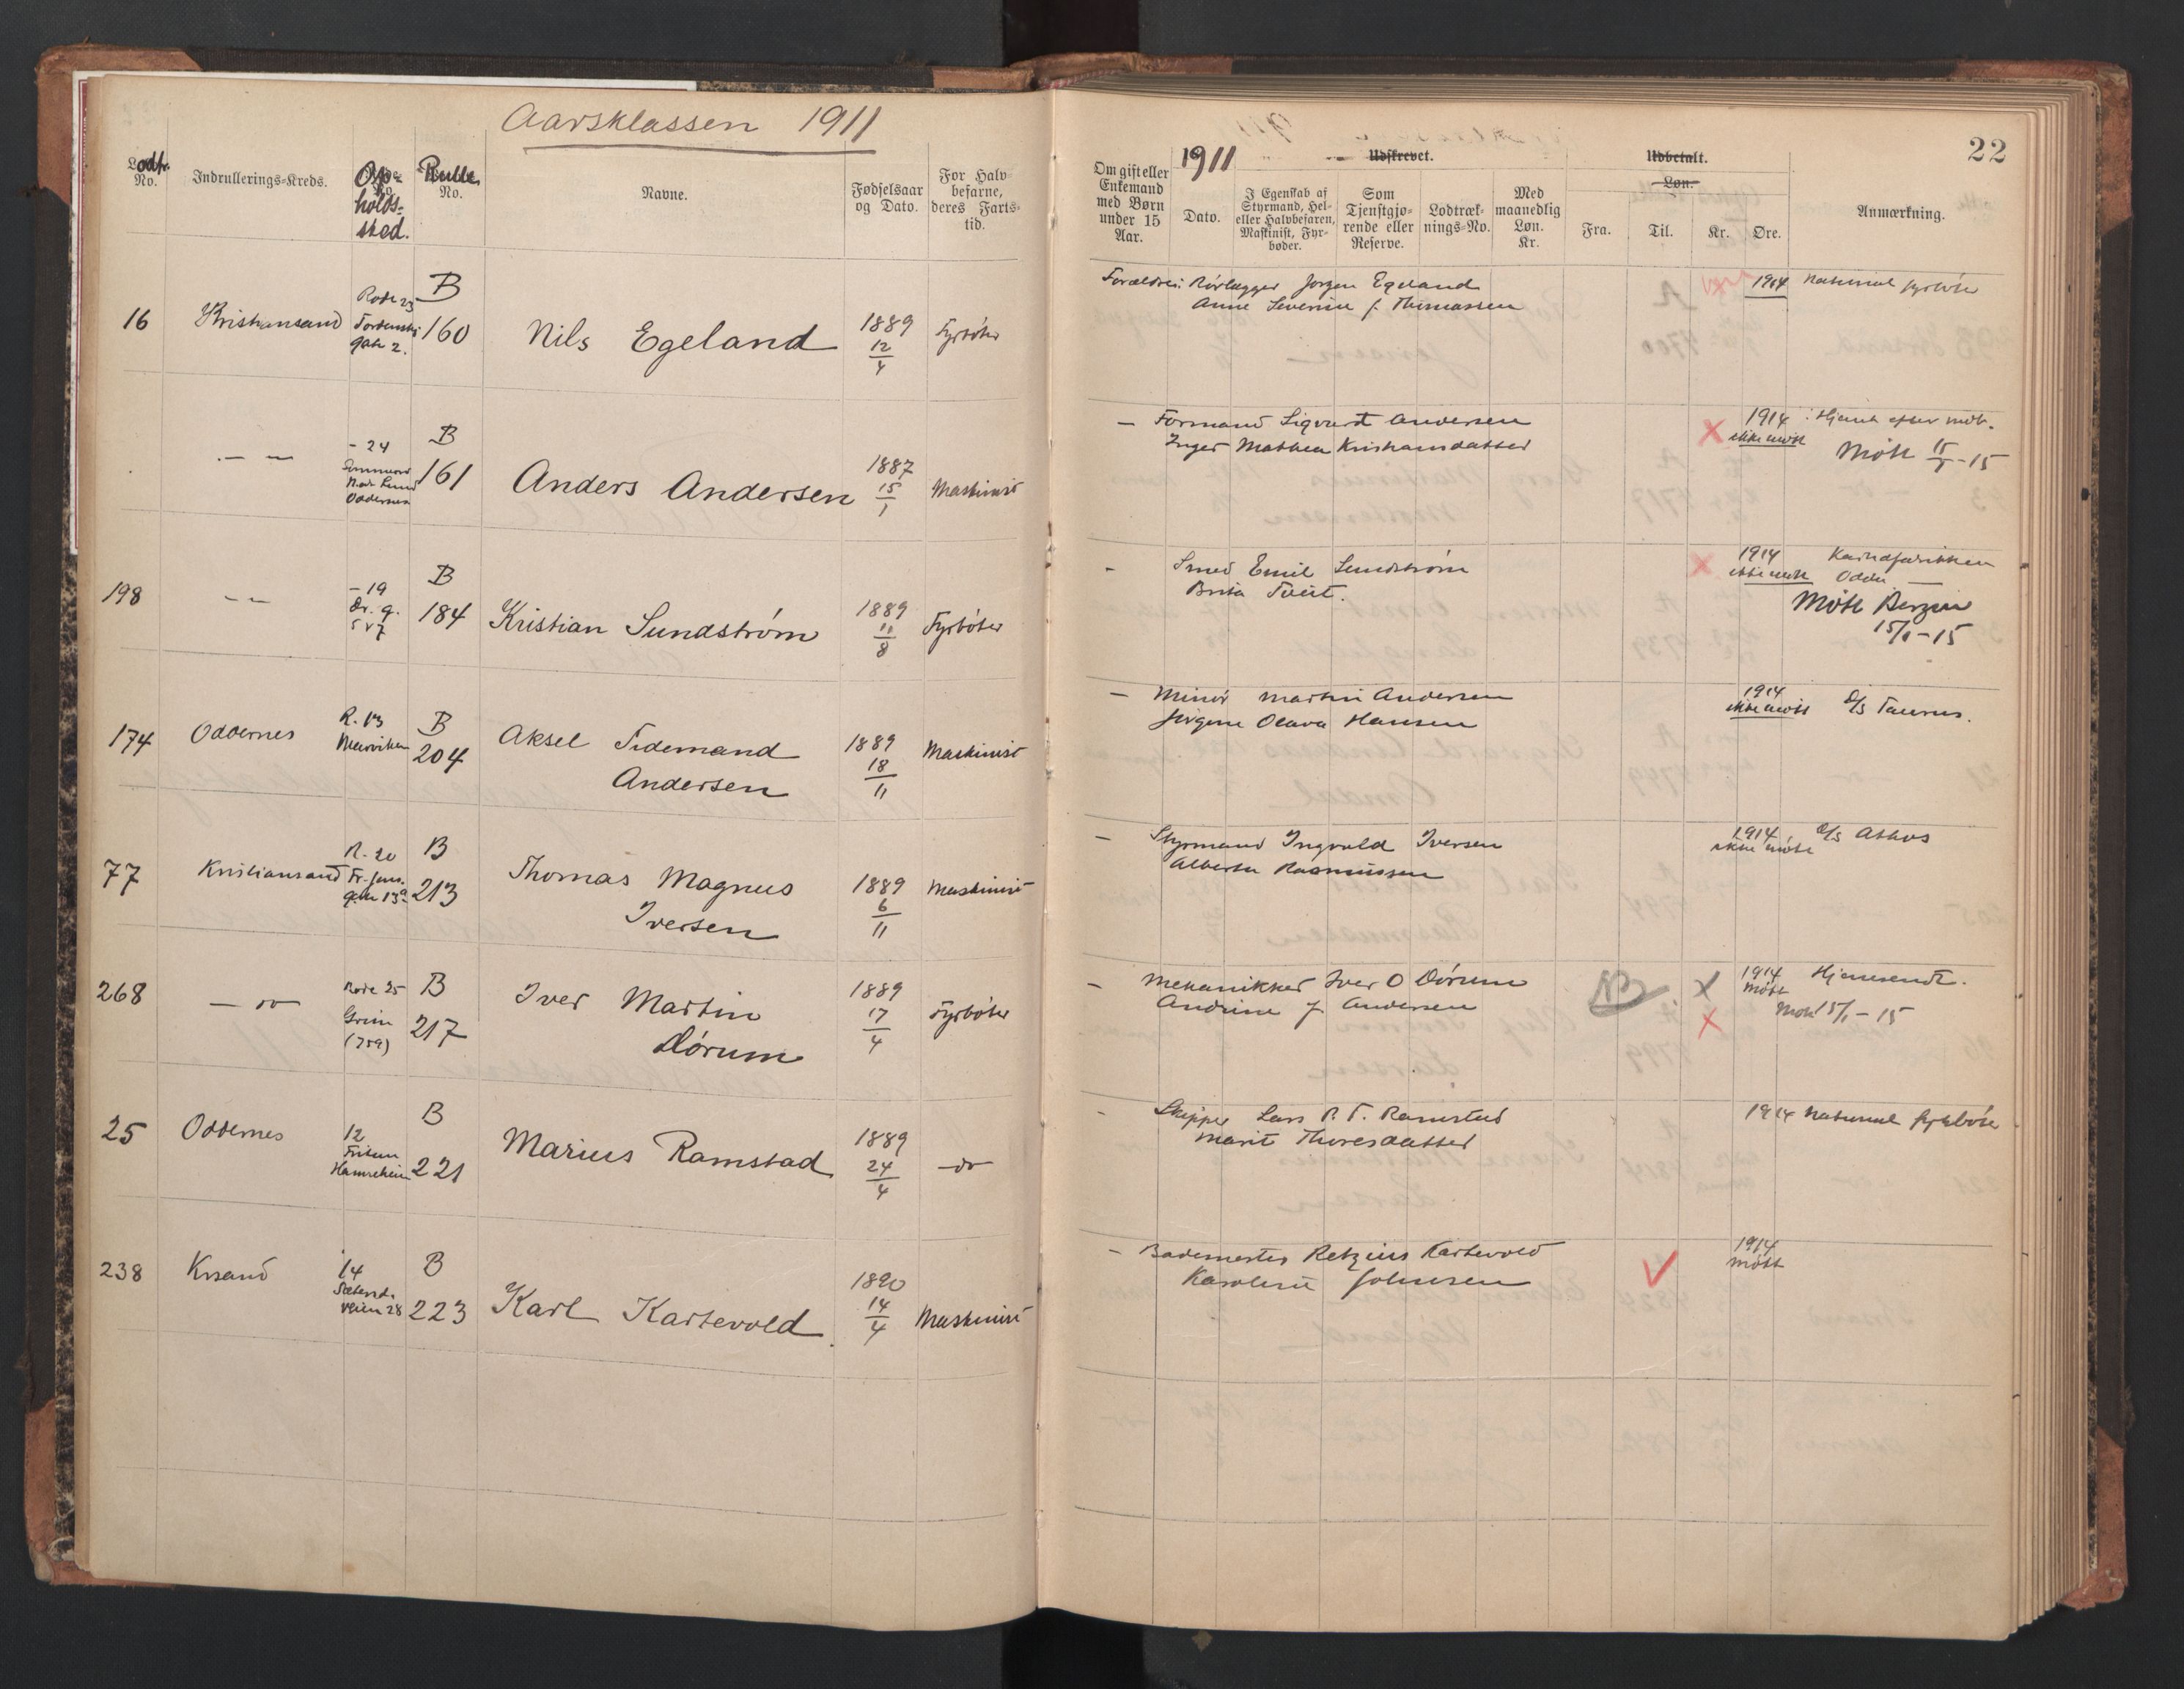 Aarsklassen 1911
Lodtr. No.
Indrullerings-Kreds.
Op-
holds-
sted.
Rulle No.
Navne.
Fødselsaar
og Dato.
For Halv-
befarne,
deres Farts-
tid.
16
Kristiansand
Rode 23
Tordenskj.
gate 2.
B
160
Nils Egeland
1889
12
4
Fyrbøter
- 24
Oddernes
B
161
Anders Andersen
1887
15
1
Maskinist
198
- 19
Dr. g.
B
184
Kristian Sundstrøm
1889
11
8
Fyrbøter
174
Oddernes
R. 13
Marviken
B
204
Aksel Tidemand
Andersen
1889
18
11
Maskinist
77
Kristiansand
R. 20
gate 13a
B
213
Thomas Magnus
Iversen
1889
6
11
Maskinist
268
- do
Rode 25
Grim
(759)
B
217
Iver Martin
Dórum
1889
17
4
Fyrbøter
25
Oddernes
12
Hamreheien
B
221
Marius Ramstad
1889
24
4
- do
238
Krsand
14
Setersd.
veien 28
B
223
Karl Kartevold.
1890
14
4
Maskinist
22
Om gift eller
Enkemand
med Børn
under 15
Aar.
1911
Udskrevet.
Dato.
I Egenskab af
Styrmand, Hel-
eller Halvbefaren,
Maskinist, Fyr-
bøder.
Som
Tjenstgjø-
rende eller
Reserve.
Lodtræk-
nings-No.
Med
maanedlig
Løn.
Kr.
Udbetalt.
Løn.
Fra.
Til.
Kr.
Øre.
Anmærkning.
Forældre: Rørlægger Jørgen Egeland
Anne Severine f. Thomassen
1914 National fyrbøter
- Formand Sigvart Andersen
Inger Mathea Kristiansdatter
X 1914
ikke møtt
Hjemk efter møte.
Møtt 15/1-15
- Smed Emil Sundstrøm
Brita Tveit.
X 1914
ikke møtt
Karbidfabrikken
Odda
Møtt Bergen
15/1-15
- Minør Martin Andersen
Jørgine Olava Hansen
1914
ikke møtt
D/S Taurus.
- Styrmand Ingvald Iversen
Alberta Rasmussen
1914
ikke møtt
D/S Athos
- Mekanikker Iver O Dórum
Andrine f. Andersen
NB
X
X
1914
møtt
Hjemsendt.
Møtt 15/1-15
- Skipper Lars P. T. Ramstad
Marit Thoresdatter
1914 National fyrbøter
- Bademester Retzius Kartevold
Karoline Johnsen
1914
møtt